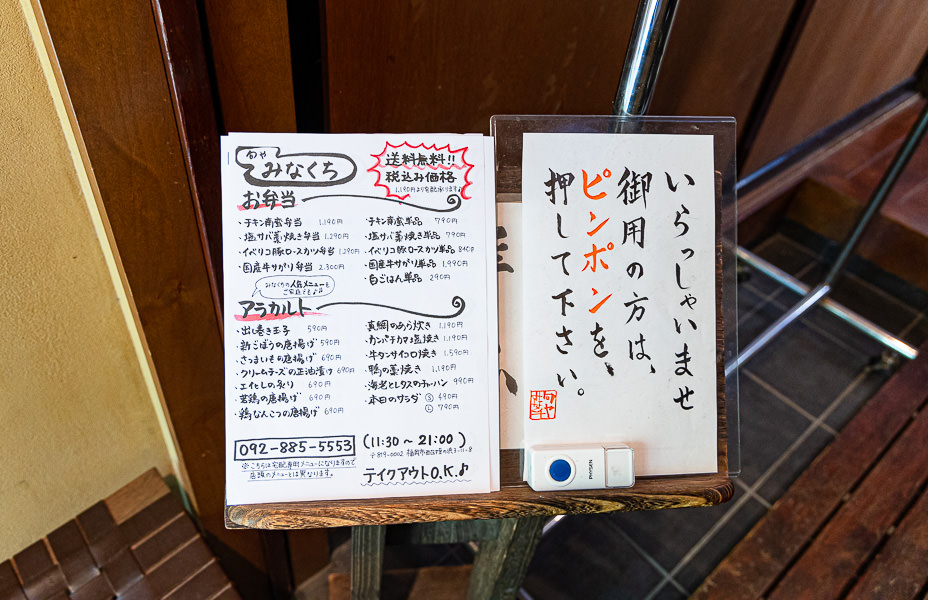 旬や
みなくち
送料無料!!
税込み価格
1,190円より宅配承ります♪
お弁当
・チキン南蛮弁当 1,190円
・塩サバ藁焼き弁当 1,290円
・イベリコ豚ロースカツ弁当 1,290円
・国産牛サガリ弁当 2,300円
・チキン南蛮単品 790円
・塩サバ藁焼き単品 790円
・イベリコ豚ロースカツ単品 840円
・国産牛サガリ単品 1,990円
・白ごはん単品 290円
みなくちの人気メニューを
ご家庭でも♪
アラカルト
・出し巻き玉子 590円
・新ごぼうの唐揚げ 590円
・さつまいもの唐揚げ 690円
・クリームチーズの正油漬け 690円
・エイヒレの炙り 690円
・若鶏の唐揚げ 690円
・鶏なんこつの唐揚げ 690円
・真鯛のあら炊き 1,190円
・カンパチカマ塩焼き 1,190円
・牛タンサイコロ焼き 1,590円
・鴨の藁焼き 1,190円
・海老とレタスのチャーハン 990円
・本日のサラダ Ⓢ 590円
Ⓛ 790円
092-885-5553
※こちらは宅配専用メニューになりますので
店頭のメニューとは異なります。
(11:30〜21:00)
〒819-0002 福岡市西区姪の浜3-11-8
テイクアウトO.K♪
いらっしゃいませ
御用の方は、
ピンポンを、
押して下さい。